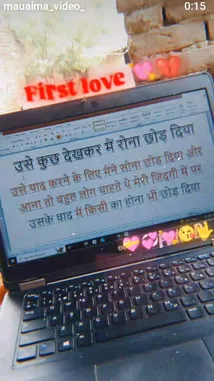 mauaima_video_
0:15
First love
उसे कुछ देखकर मैं रोना छोड़ दिया
उसे याद करने के लिए मैंने सोना छोड़ दिया और
आना तो बहुत लोग चाहते थे मेरी जिंदगी में पर
उसके बाद मैं किसी का होना भी छोड़ दिया